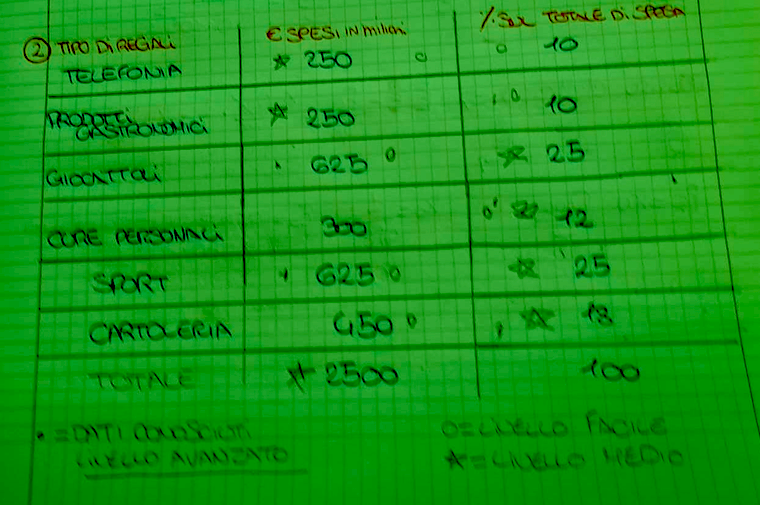 ② TIPO DI REGALI € SPESI IN milioni % SUL TOTALE DI SPESA
TELEFONIA ☆ 250 o o 10
PRODOTTI GASTRONOMICI ☆ 250 ' o 10
GIOCATTOLI ' 625 o ☆ 25
CURE PERSONALI 300 o ' ☆ 12
SPORT ' 625 o ☆ 25
CARTOLERIA 450 o ' ☆ 18
TOTALE ☆ 2500 100
• = DATI CONOSCIUTI O = LIVELLO FACILE
LIVELLO AVANZATO ☆ = LIVELLO MEDIO